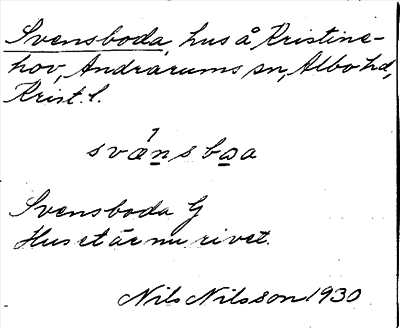 Svensboda, hus å Kristine-
hov, Andrarums sn, Albo hd,
Krist. l.
svænsboa
Svensboda G
Huset är nu rivet.
Nils Nilsson 1930